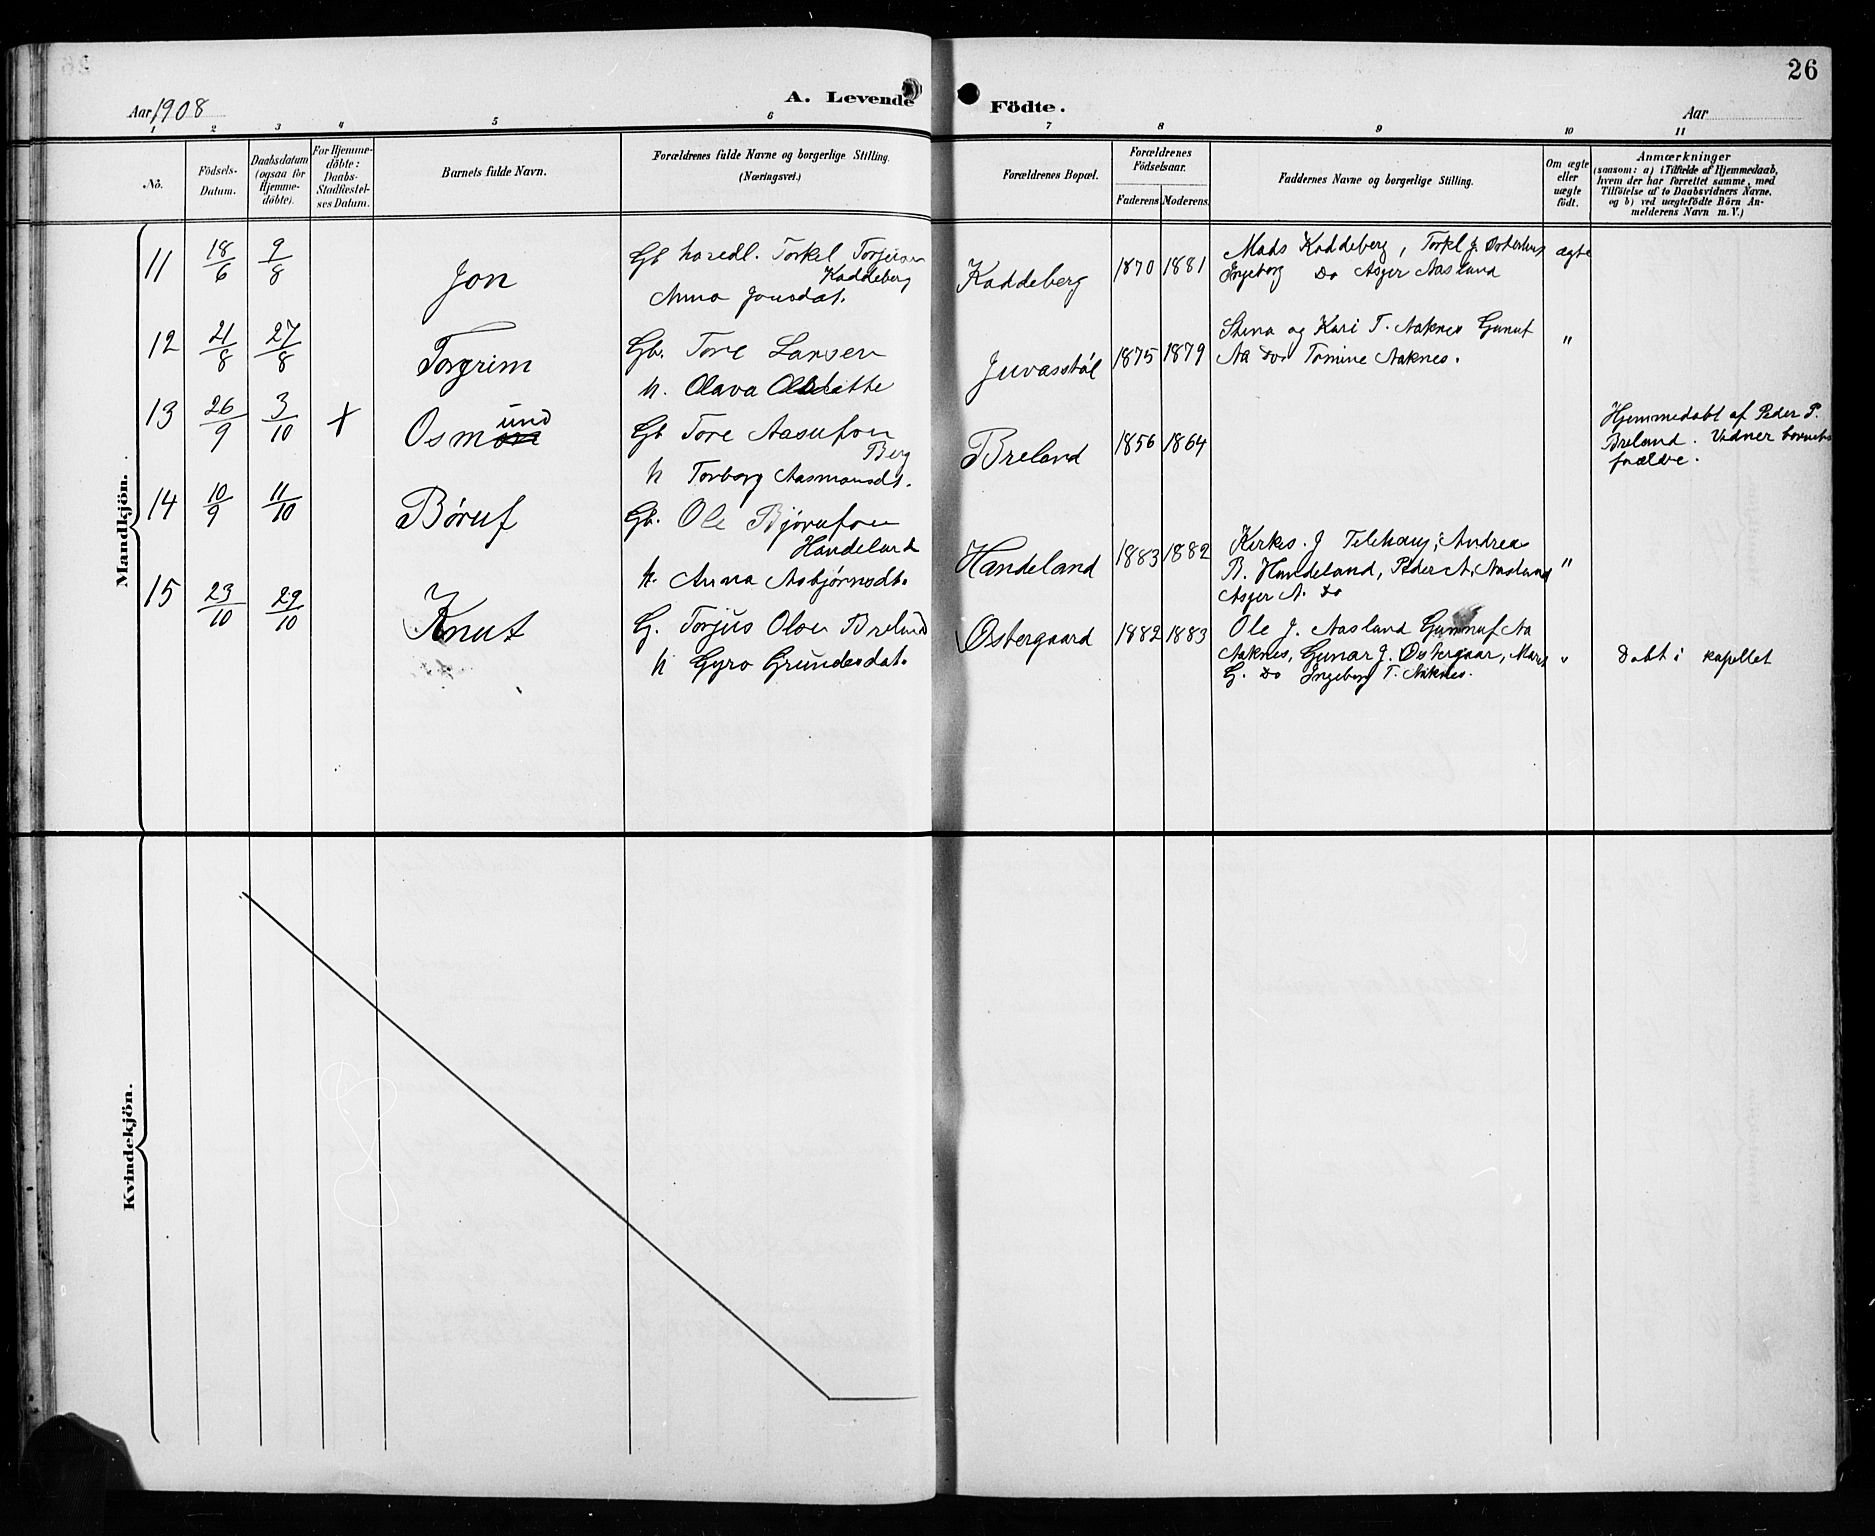 26
Aar 1908
A. Levende Födte.
Aar
1 2 3 4 5 6 7 8 9 10 11
No.
Födsels-Datum.
Daabsdatum (ogsaa for Hjemme-döbte).
For Hjemme-döbte: Daabs-Stadfæstel-ses Datum.
Barnets fulde Navn.
Forældrenes fulde Navne og borgerlige Stilling.
(Næringsvei.)
Forældrenes Bopæl.
Forældrenes Födselsaar.
Faderens Moderens.
Faddernes Navne og borgerlige Stilling.
Om ægte eller uægte födt.
Anmærkninger
(saasom: a) i Tilfælde af Hjemmedaab,
hvem der har forrettet samme, med
Tilföielse af to Daabsvidners Navne.
og b) ved uægtefödte Börn An-
melderens Navn m. V.)
Mandkjön.
11 18/6 9/8 Jon
Gb. Torkel Torjusen
Kaddeberg
Anna Jonsdat.
Kaddeberg 1870 1881
Mads Kaddeberg, Torkl J.
Ingeborg Do Asger Aasland
ægte
12 21/8 27/8 Torgrim
Gb. Tore Larsen
h. Olava
Juvasstøl 1875 1879
og Kari T. Aaknes Gunuf
Aa Do Tomine Aaknes.
"
13 26/9 3/10 + Osmund
Gb Tore Aasufsen
Berg
h Torborg Aasmundsdt.
Breland 1856 1864
Hjemmedøbt af Peder P.
Breland. Vidner barnets
forældre.
14 10/9 11/10 Børuf
Gb. Ole Bjørufsen
Handeland
h. Anna Asbjørnsdt.
Handeland 1883 1882
Kirkes. J Telehaug, Andrea
B. Handeland, Peder A. Aasland
Asger A. Do
"
15 23/10 29/10 Knut
G. Torjus Olsen Breland
h Gyro Grundesdat.
Østergaard 1882 1883
Ole J. Aasland Gunnuf Aa
Aaknes, Gunar J. Østergaar,
G. Do Ingeborg T. Aaknes.
"
Døbt i kapellet
Kvindekjön.